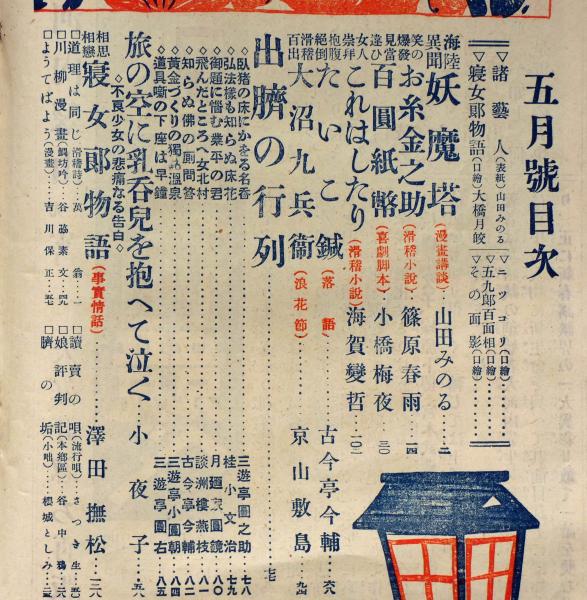 五月號目次
▽諸藝人(表紙)山田みのる
▽ニツコリ(口繪)
▽寢女郞物語(口繪)大橋月皎
▽五九郞百面相(口繪)
▽その面影(口繪)
海陸異聞 妖魔塔(漫畫講談)山田みのる 二
笑の爆發 お糸金之助(滑稽小說)篠原春雨 一四
見當違ひ 百圓紙幣(喜劇脚本)小橋梅夜 三〇
女人崇拜 これはしたり(滑稽小說)海賀變哲 一〇二
抱腹絕倒 たいこ鍼(落語)古今亭今輔 六八
滑稽百出 大沼九兵衞(浪花節)京山敷島 九四
出臍の行列 七七
◇臥猪の床にかをる名香 三遊亭圓之助 七八
◇弘法樣も知らぬ床花 桂小文治 七九
◇御題に惱む業平の君 月廼家圓鏡 八〇
◇飛んだところへ女北村 談洲樓燕枝 八一
◇知らぬ佛の厠問答 古今亭今輔 八二
◇黃金づくりの獨鈷溫泉 三遊亭小圓朝 八四
◇道具噺の下座は早鐘 三遊亭圓右 八五
旅の空に乳呑兒を抱へて泣く 小夜子 五八
◇不良少女の悲痛なる告白◇
相思相戀 寢女郞物語(事實情話)澤田撫松 三八
□道理は同じ(滑稽詩)萬翁 一
□讀賣の唄(流行唄)さつき生 五〇
□川柳漫畫(鯛坊吟)谷脇素文 四九
□娘評判記(本鄕區)谷中鴉 六六
□ようてばよう(漫畫)吉川保正 五七
□臍の垢(小咄)櫻城としみ